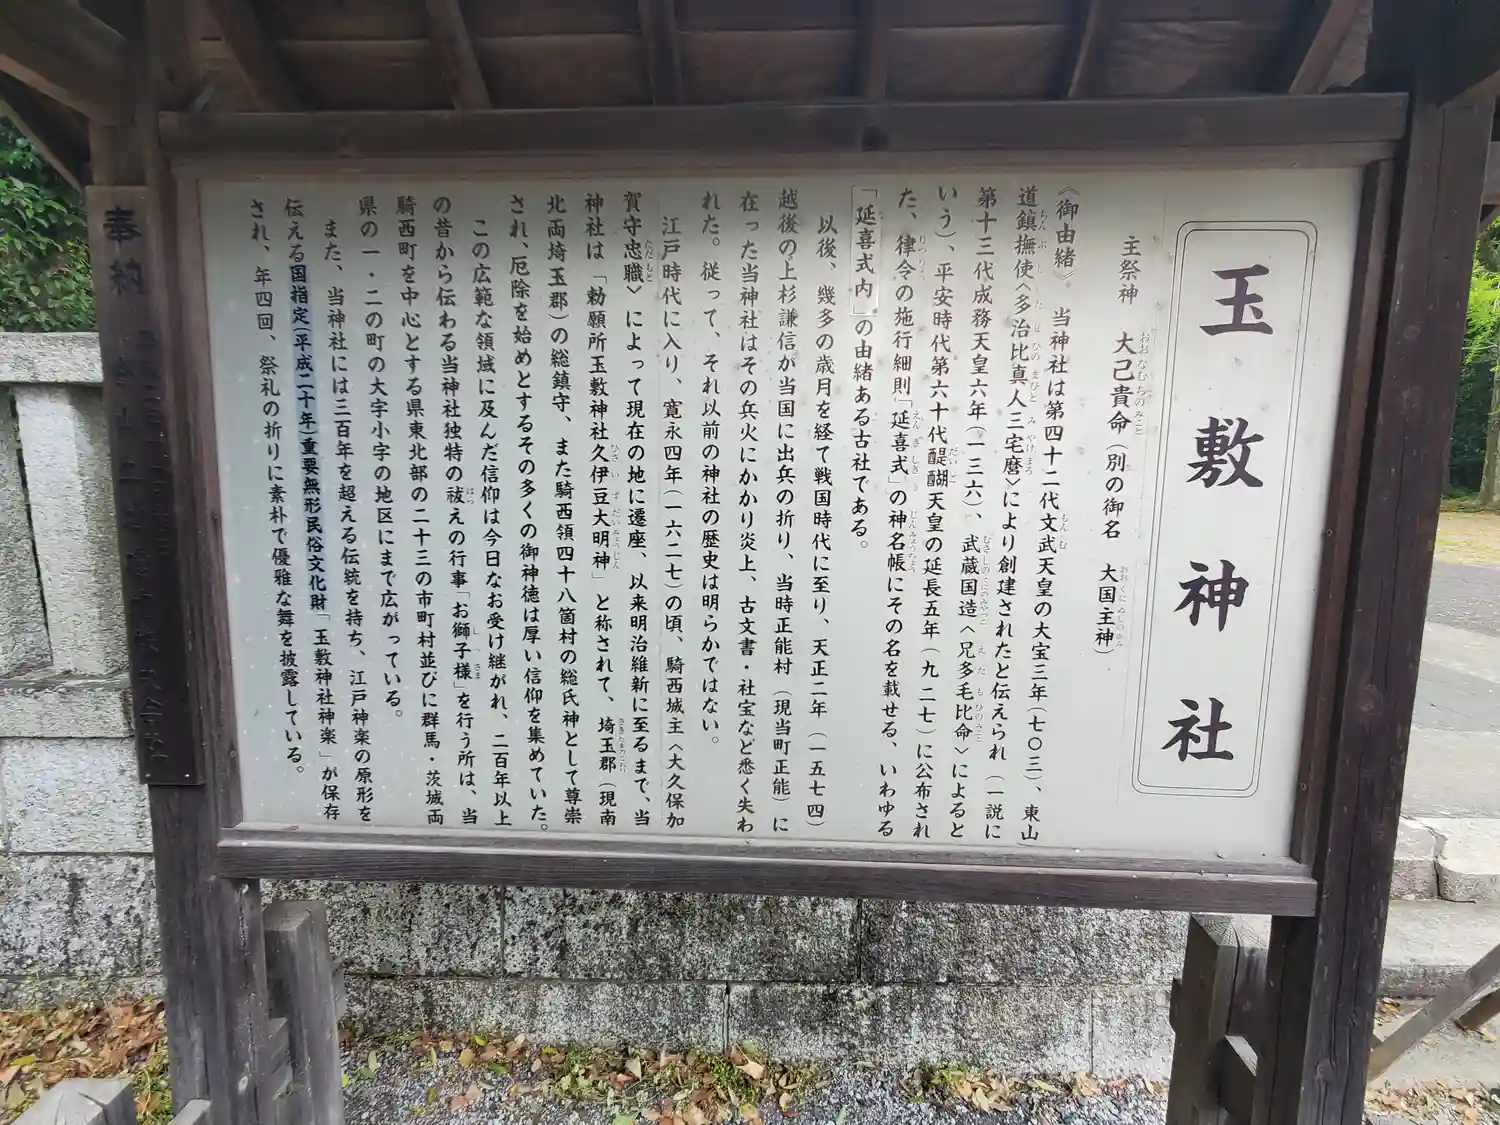 玉敷神社
主祭神　大己貴命（別の御名　大国主神）
《御由緒》　当神社は第四十二代文武天皇の大宝三年（七〇三）、東山
道鎮撫使〈多治比真人三宅麿〉により創建されたと伝えられ（一説に
第十三代成務天皇六年（一三六）、武蔵国造〈兄多毛比命〉によると
いう）、平安時代第六十代醍醐天皇の延長五年（九二七）に公布され
た、律令の施行細則「延喜式」の神名帳にその名を載せる、いわゆる
「延喜式内」の由緒ある古社である。
以後、幾多の歳月を経て戦国時代に至り、天正二年（一五七四）
越後の上杉謙信が当国に出兵の折り、当時正能村（現当町正能）に
在った当神社はその兵火にかかり炎上、古文書・社宝など悉く失わ
れた。従って、それ以前の神社の歴史は明らかではない。
江戸時代に入り、寛永四年（一六二七）の頃、騎西城主〈大久保加
賀守忠職〉によって現在の地に遷座、以来明治維新に至るまで、当
神社は「勅願所玉敷神社久伊豆大明神」と称されて、埼玉郡（現南
北両埼玉郡）の総鎮守、また騎西領四十八箇村の総氏神として尊崇
され、厄除を始めとするその多くの御神徳は厚い信仰を集めていた。
この広範な領域に及んだ信仰は今日なお受け継がれ、二百年以上
の昔から伝わる当神社独特の祓えの行事「お獅子様」を行う所は、当
騎西町を中心とする県東北部の二十三の市町村並びに群馬・茨城両
県の一・二の町の大字小字の地区にまで広がっている。
また、当神社には三百年を超える伝統を持ち、江戸神楽の原形を
伝える国指定（平成二十年）重要無形民俗文化財「玉敷神社神楽」が保存
され、年四回、祭礼の折りに素朴で優雅な舞を披露している。
奉納